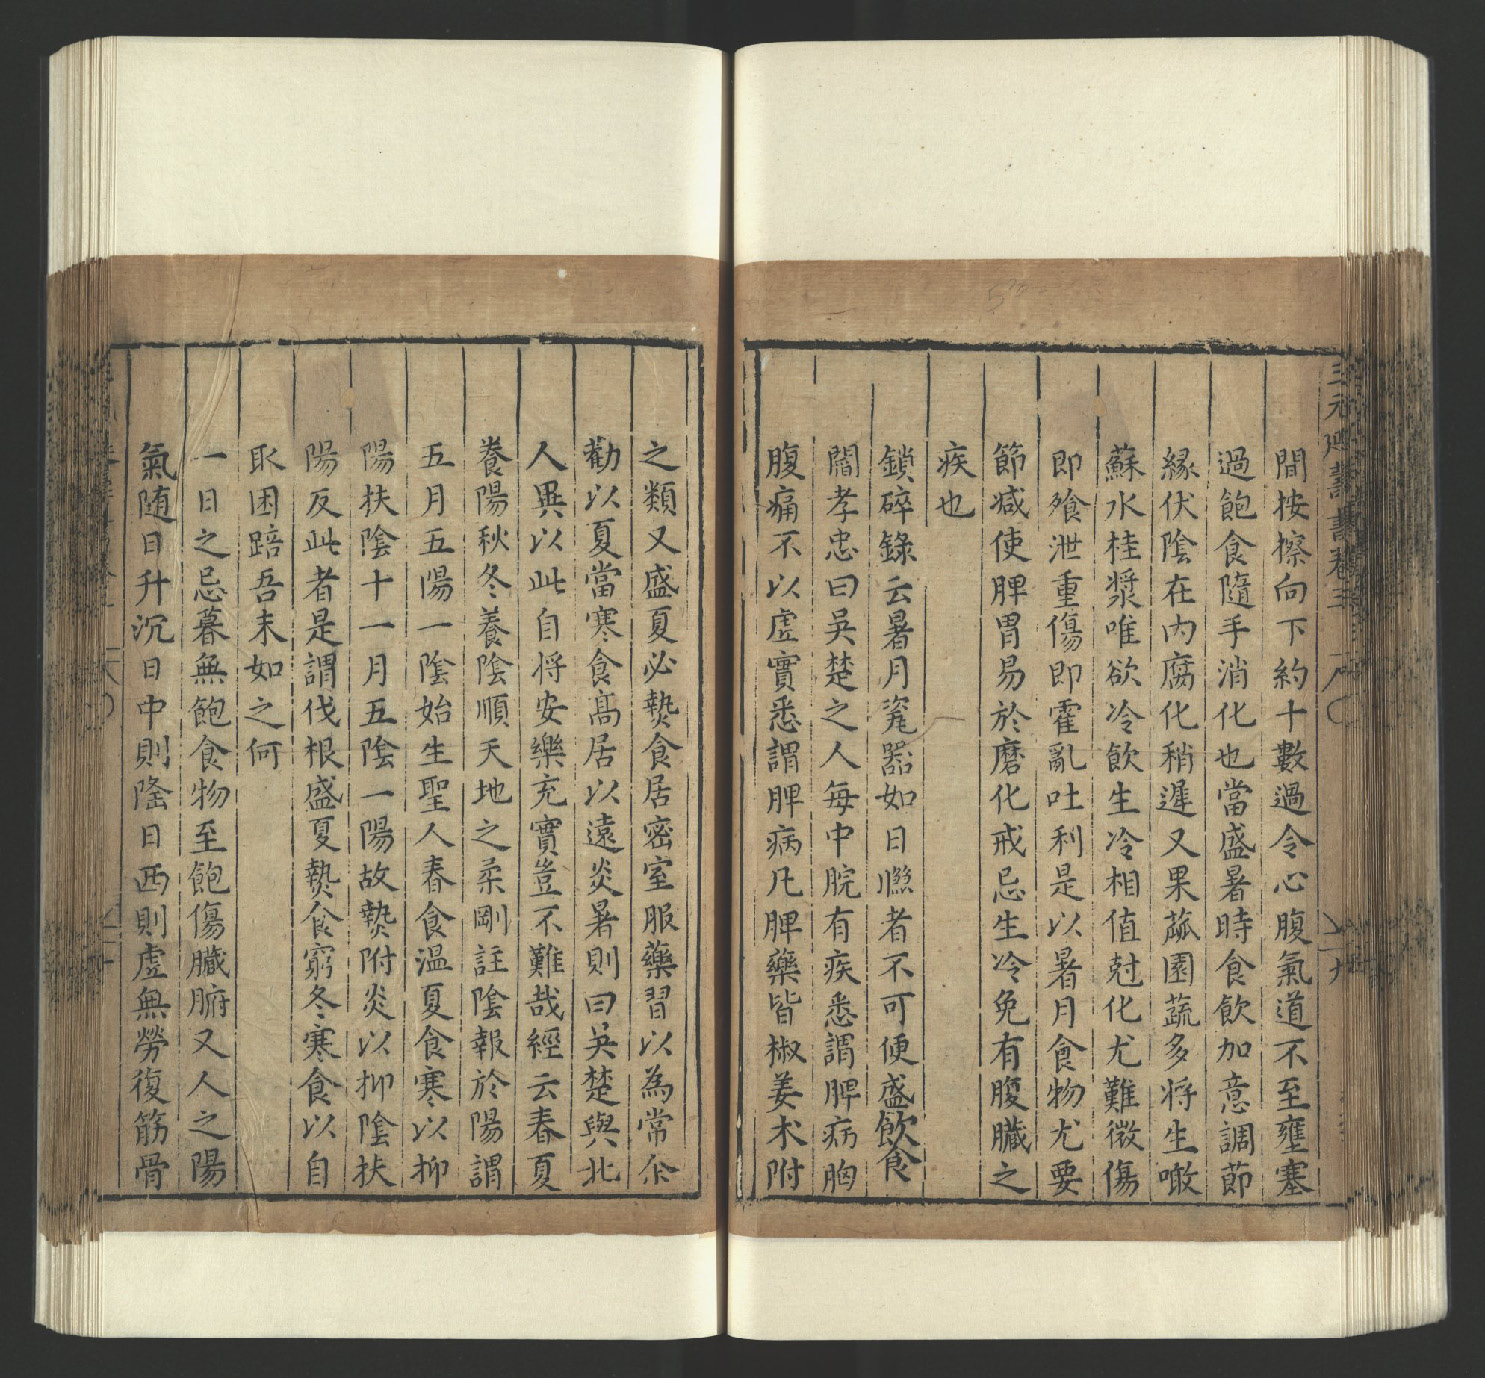 間按擦向下約十數過令心腹氣道不至壅塞
過飽食隨手消化也當盛暑時食飲加意調節
緣伏陰在內腐化稍遲又果蓏園蔬多將生噉
蘇水桂漿唯欲冷飲生冷相值尅化尤難微傷
即飱泄重傷即霍亂吐利是以暑月食物尤要
節减使脾胃易於磨化戒忌生冷免有腹臟之
疾也
鎖碎錄云暑月瓷器如日㬠者不可便盛飲食
閻孝忠曰吳楚之人每中脘有疾悉謂脾病胸
腹痛不以虛實悉謂脾病凡脾藥皆椒姜术附
之類又盛夏必𤍠食居密室服藥習以為常尒
勸以夏當寒食髙居以遠炎暑則曰吳楚與北
人異以此自將安樂充實豈不難哉經云春夏
養陽秋冬養陰順天地之柔剛註陰報於陽謂
五月五陽一陰始生聖人春食温夏食寒以抑
陽扶陰十一月五陰一陽故𤍠附炎以抑陰扶
陽反此者是謂伐根盛夏𤍠食窮冬寒食以自
取困踣吾末如之何
一日之忌暮無飽食物至飽傷臟腑又人之陽
氣随日升沉日中則隆日西則虛無勞復筋骨